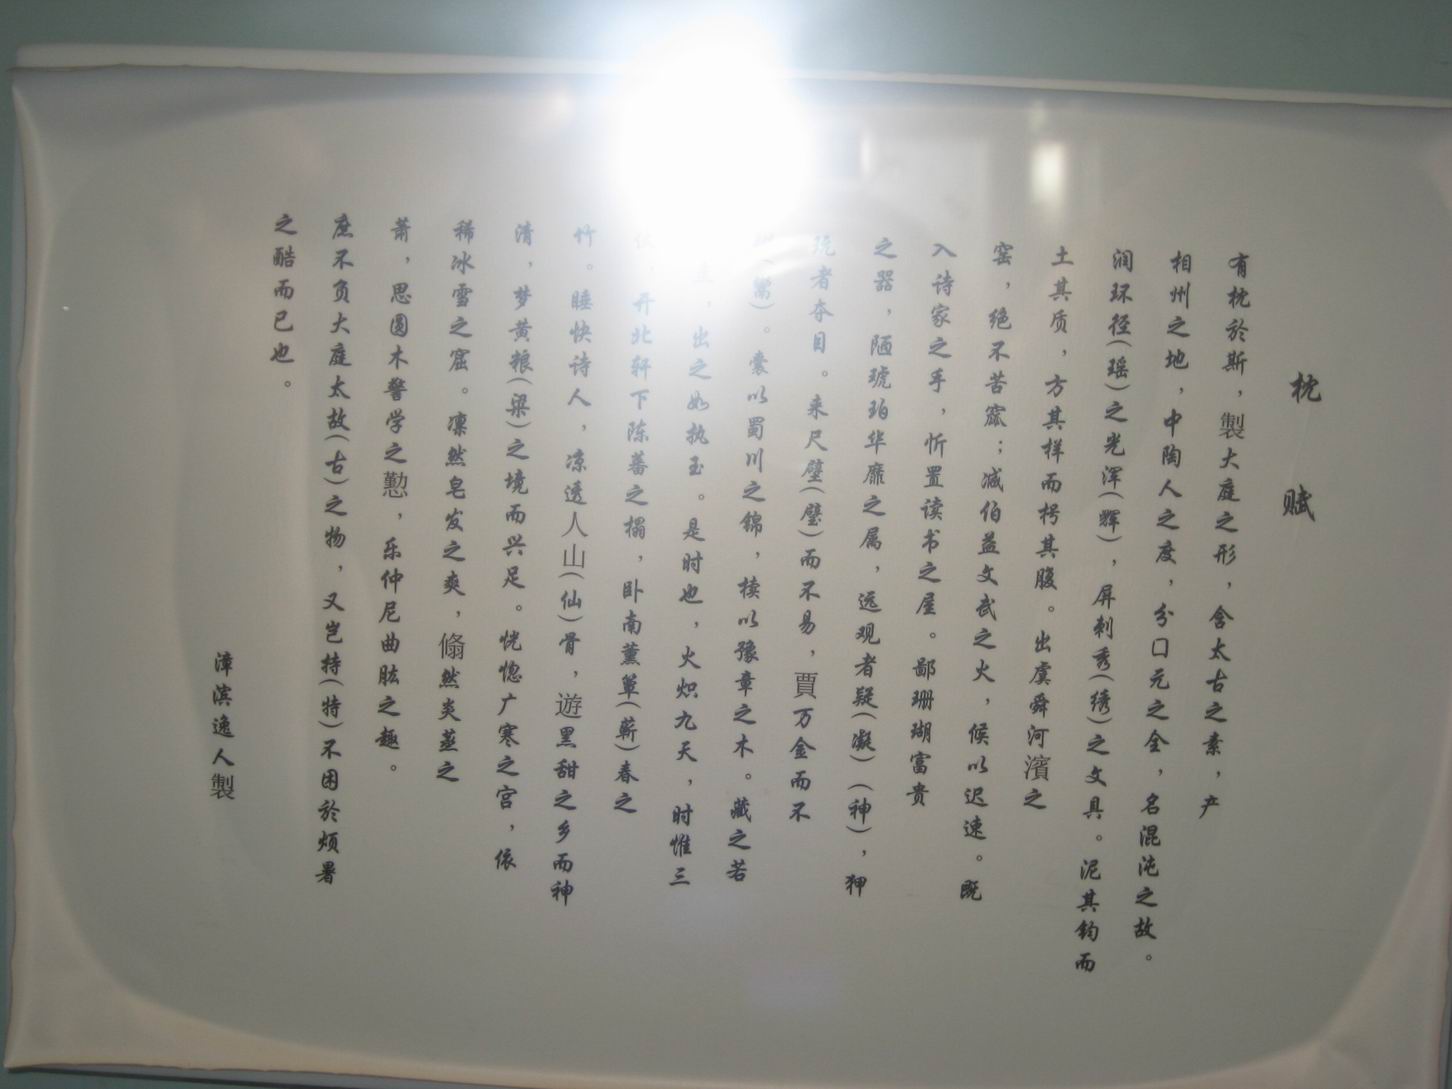 枕赋
有枕於斯，製大庭之形，含太古之素，产
相州之地，中陶人之度，分口元之全，名混沌之故。
润环径(瑶)之光浑(辉)，屏刺秀(绣)之文具。泥其钧而
土其质，方其样而枵其腹。出虞舜河濱之
窑，绝不苦窳；减伯益文武之火，候以迟速。既
入诗家之手，忻置读书之屋。鄙珊瑚富贵
之器，陋琥珀华靡之属，远观者疑(凝)(神)，狎
玩者夺目。来尺璧(璧)而不易，賈万金而不
。囊以蜀川之锦，椟以豫章之木。藏之若
，出之如执玉。是时也，火炽九天，时惟三
，开北轩下陈蕃之榻，卧南薰簟(蕲)春之
竹。睡快诗人，凉透人山(仙)骨，遊黑甜之乡而神
清，梦黄粮(梁)之境而兴足。恍惚广寒之宫，依
稀冰雪之窟。凛然皂发之爽，翛然炎蒸之
萧，思圆木警学之懃，乐仲尼曲肱之趣。
庶不负大庭太故(古)之物，又岂持(特)不困於烦暑
之酷而已也。
漳滨逸人製